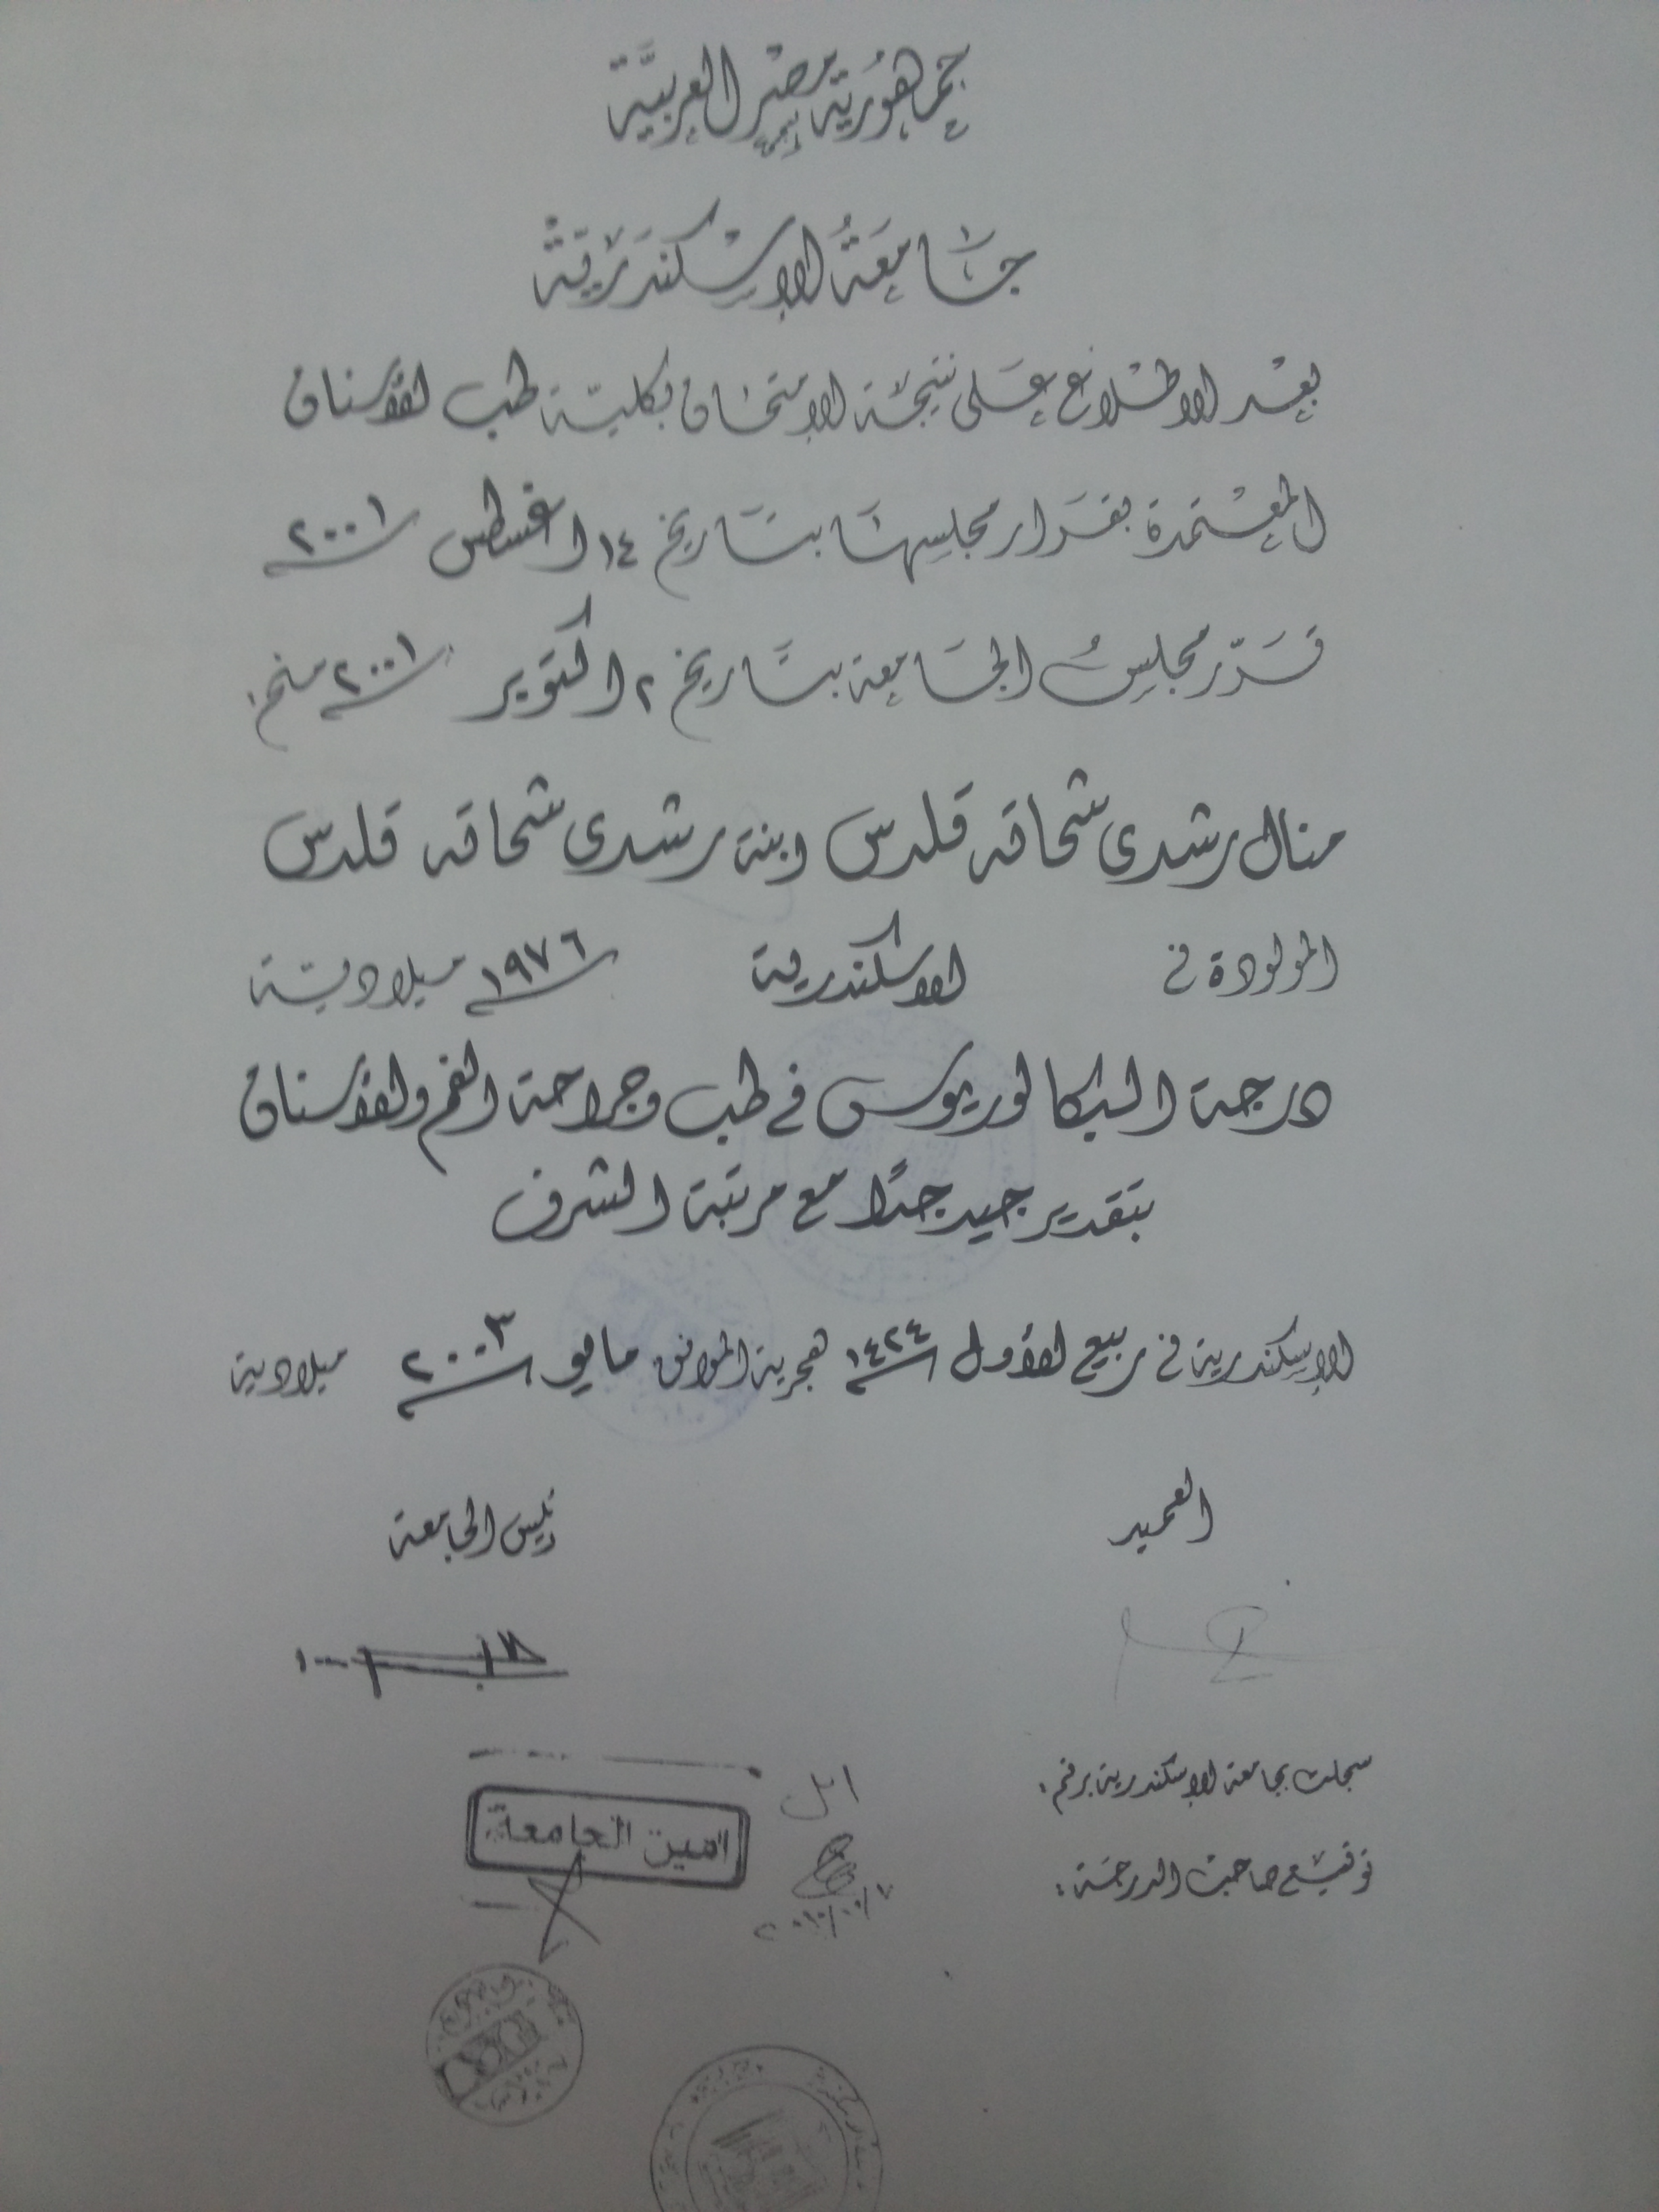 جمهورية مصر العربية
جامعة الإسكندرية
بعد الاطلاع على نتيجة الامتحان بكلية طب الأسنان
المعتمدة بقرار مجلسها بتاريخ ١٤ اغسطس ٢٠٠١
قرر مجلس الجامعة بتاريخ ٢ اكتوبر ٢٠٠١ منح:
منال رشدى شحاته قلدس وبنة رشدى شحاته قلدس
المولودة فى الاسكندرية ١٩٧٦ ميلادية
درجة البكالوريوس فى طب وجراحة الفم والأسنان
بتقدير جيد جدًا مع مرتبة الشرف
الإسكندرية فى ربيع الأول ١٤٢٤ هجرية الموافق مايو ٢٠٠٣ ميلادية
العميد رئيس الجامعة
سجلت بجامعة الإسكندرية برقم:
امين الجامعة
توقيع صاحبة الدرجة: